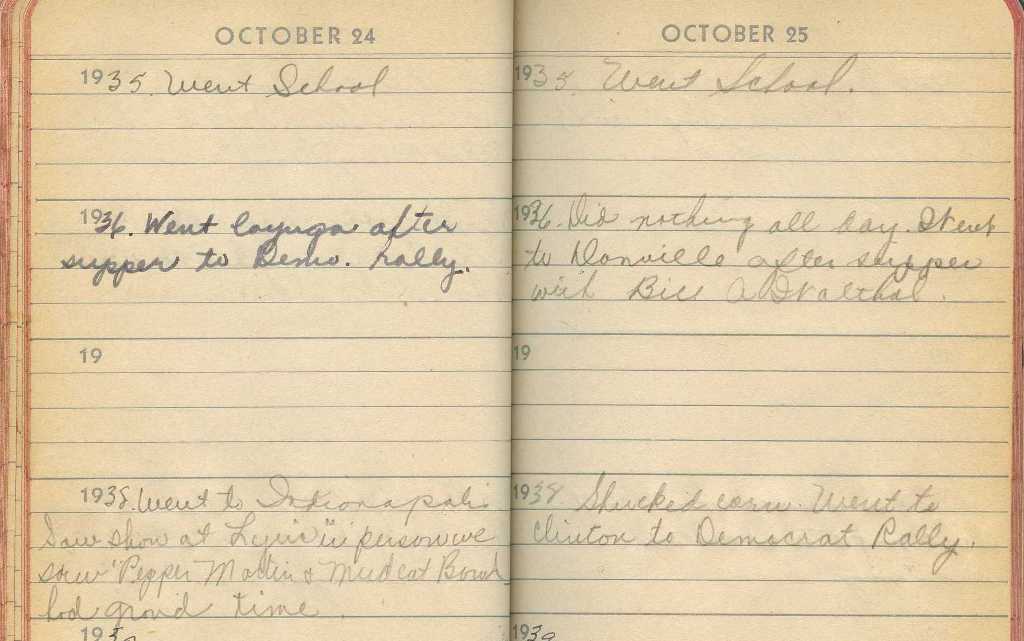 OCTOBER 24
1935. Went School
1936. Went Cayuga after
supper to Demo. Rally.
19
1938. Went to Indianapolis
Saw show at Lyric "in person we
saw "Pepper Martin & Mudcat Band
had grand time.
1939
OCTOBER 25
1935. Went School.
1936. Did nothing all day. Went
to Danville after supper
with Bill
19
1938 Shucked corn. Went to
Clinton to Democrat Rally.
1939